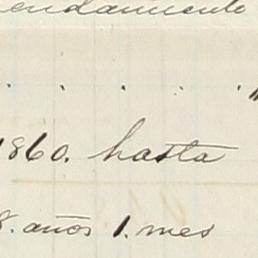 endamiento
. . . . "
1860. hasta
8. años 1. mes